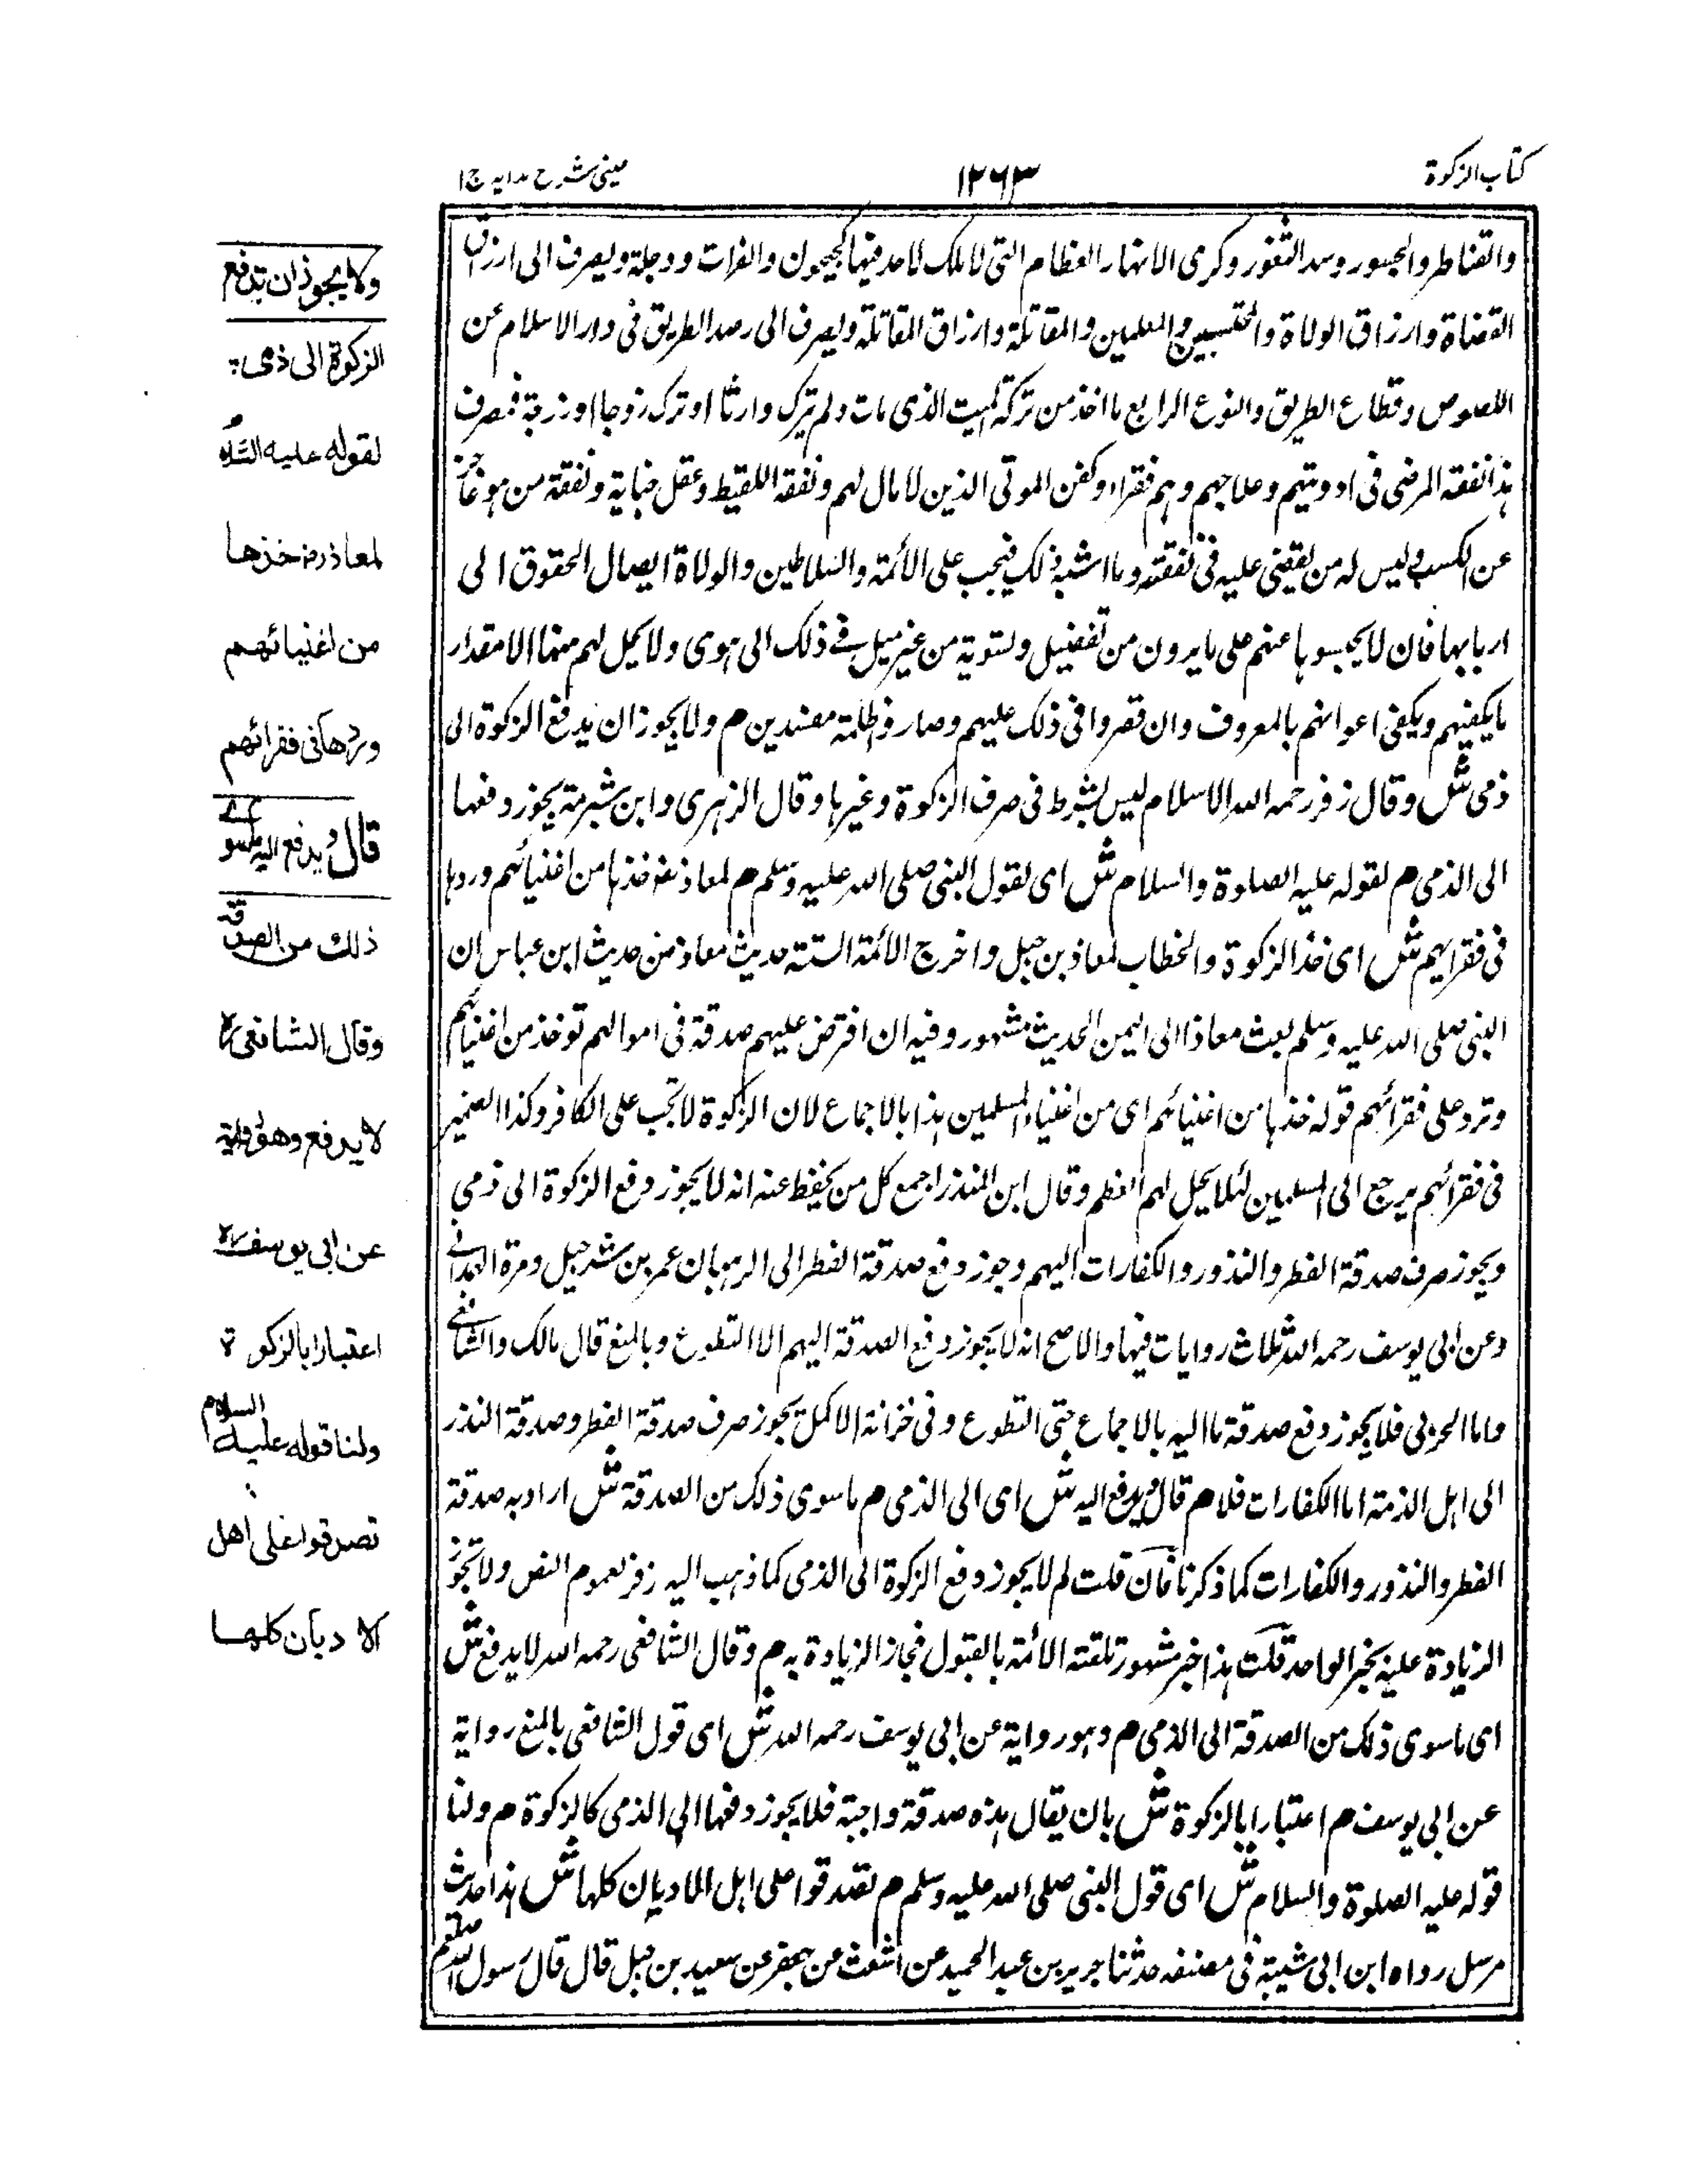 كتاب الزكوة
١٢٦٣
عينى شرح هدايه ج١
والقناطر والجسور وسد الثغور وكرى الانهار العظام التى لا ملك لاحد فيها كجيحون والفرات ودجلة ويصرف الى ارزاق
القضاة وارزاق الولاة والمحتسبين والمعلمين والمقاتلة وارزاق المقاتلة ويصرف الى رصد الطريق فى دور الاسلام عن
اللصوص وقطاع الطريق والنوع الرابع ما اخذ من تركة الميت الذى مات ولم يترك وارثا او ترك زوجا او زوجة فمصرف
هذا نفقة المرضى فى ادويتهم وعلاجهم وهم فقراء وكفن الموتى الذين لا مال لهم ونفقة اللقيط وعقل جنايته ونفقة من هو عاجز
عن الكسب وليس له من يقضى عليه فى نفقته وما اشبه ذلك فيجب على الأئمة والسلاطين والولاة ايصال الحقوق الى
اربابها فان لا يحبسوها عنهم على ما يرون من تفضيل وتسوية من غير ميل فى ذلك الى هوى ولا يحل لهم منها الا مقدار
ما يكفيهم ويكفى اعوانهم بالمعروف وان قصروا فى ذلك عليهم وصاروا ظلمة مفسدين م ولا يجوز ان يدفع الزكوة الى
ذمى ش وقال زفر رحمه الله الاسلام ليس بشرط فى صرف الزكوة وغيرها وقال الزهرى وابن شبرمة يجوز دفعها
الى الذمى م لقوله عليه الصلوة والسلام ش اى لقول النبى صلى الله عليه وسلم م لمعاذ خذها من اغنيائهم وردها
فى فقرائهم ش اى خذ الزكوة والخطاب لمعاذ بن جبل واخرج الائمة الستة حديث معاذ من حديث ابن عباس ان
النبى صلى الله عليه وسلم بعث معاذا الى اليمن الحديث مشهور وفيه ان افترض عليهم صدقة فى اموالهم توخذ من اغنيائهم
وترد على فقرائهم قوله خذها من اغنيائهم اى من اغنياء المسلمين هذا بالاجماع لان الزكوة لا تجب على الكافر وكذا الضمير
فى فقرائهم يرجع الى المسلمين لئلا يحل لهم النظم وقال ابن المنذر اجمع كل من يحفظ عنه انه لا يجوز دفع الزكوة الى ذمى
ويجوز صرف صدقة الفطر والنذور والكفارات اليهم وجوز دفع صدقة الفطر الى الرهبان عمر بن شرحبيل ومرة الهمدانى
وعن ابى يوسف رحمه الله ثلاث روايات فيها والاصح انه لا يجوز دفع الصدقة اليهم الا التطوع وبالمنع قال مالك والشافعى
واما الحربى فلا يجوز دفع صدقة ما اليه بالاجماع حتى التطوع وفى خزانة الاكمل يجوز صرف صدقة الفطر وصدقة النذر
الى اهل الذمة اما الكفارات فلا م قال ويدفع اليه ش اى الى الذمى م ما سوى ذلك من الصدقة ش اراد به صدقة
الفطر والنذور والكفارات كما ذكرنا فان قلت لم لا يجوز دفع الزكوة الى الذمى كما ذهب اليه زفر لعموم النص ولا تجوز
الزيادة عليه بخبر الواحد قلت هذا خبر مشهور تلقته الائمة بالقبول فجاز الزيادة به م وقال الشافعى رحمه الله لا يدفع ش
اى ما سوى ذلك من الصدقة الى الذمى م وهو رواية عن ابى يوسف رحمه الله ش اى قول الشافعى بالمنع رواية
عن ابى يوسف م اعتبارا بالزكوة ش بان يقال هذه صدقة واجبة فلا يجوز دفعها الى الذمى كالزكوة م ولنا
قوله عليه الصلوة والسلام ش اى قول النبى صلى الله عليه وسلم م تصدقوا على اهل الاديان كلها ش هذا حديث
مرسل رواه ابن ابى شيبة فى مصنفه حدثنا جرير بن عبد الحميد عن اشعث عن جعفر عن سعيد بن جبل قال قال رسول الله صلعم
ولا يجوز ان تدفع
الزكوة الى ذمى
لقوله عليه السلام
لمعاذ رض خذها
من اغنيائهم
وردها فى فقرائهم
قال ويدفع اليه ما سوى
ذلك من الصدقة
وقال الشافعى رح
لا يدفع وهو رواية
عن ابى يوسف رح
اعتبارا بالزكوة
ولنا قوله عليه السلام
تصدقوا على اهل
الاديان كلها